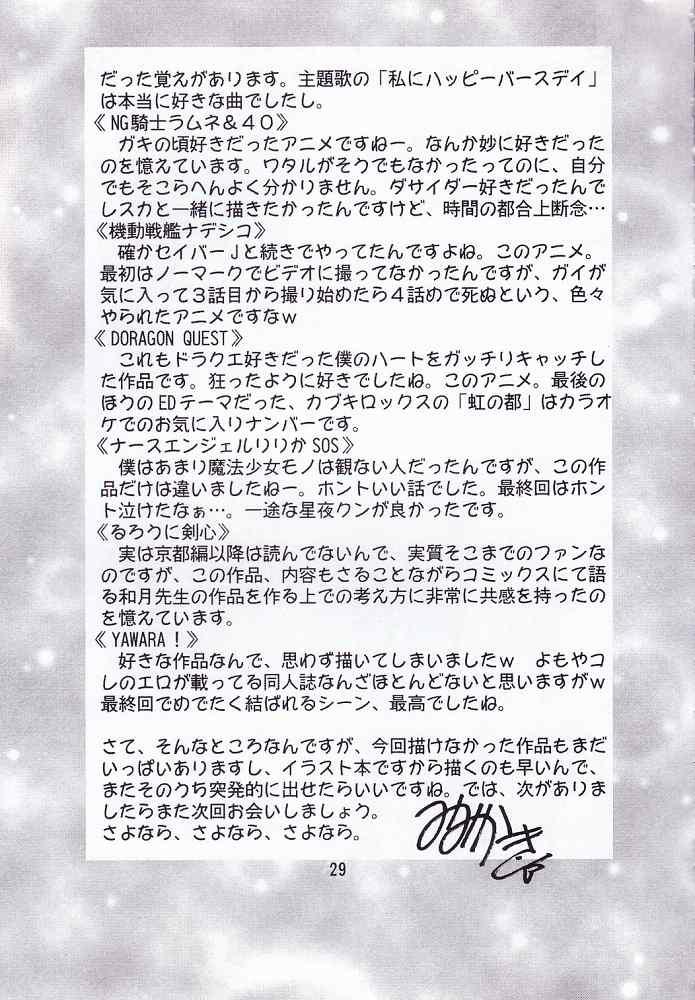 だった覚えがあります。主題歌の「私にハッピーバースデイ」
は本当に好きな曲でしたし。
《NG騎士ラムネ＆４０》
　ガキの頃好きだったアニメですねー。なんか妙に好きだった
のを憶えています。ワタルがそうでもなかったってのに、自分
でもそこらへんよく分かりません。ダサイダー好きだったんで
レスカと一緒に描きたかったんですけど、時間の都合上断念…
《機動戦艦ナデシコ》
　確かセイバーＪと続きでやってたんですよね。このアニメ。
最初はノーマークでビデオに撮ってなかったんですが、ガイが
気に入って３話目から撮り始めたら４話めで死ぬという、色々
やられたアニメですなｗ
《DORAGON QUEST》
　これもドラクエ好きだった僕のハートをガッチリキャッチし
た作品です。狂ったように好きでしたね。このアニメ。最後の
ほうのEDテーマだった、カブキロックスの「虹の都」はカラオ
ケでのお気に入りナンバーです。
《ナースエンジェルりりかSOS》
　僕はあまり魔法少女モノは観ない人だったんですが、この作
品だけは違いましたねー。ホントいい話でした。最終回はホン
ト泣けたなぁ…。一途な星夜クンが良かったです。
《るろうに剣心》
　実は京都編以降は読んでないんで、実質そこまでのファンな
のですが、この作品、内容もさることながらコミックスにて語
る和月先生の作品を作る上での考え方に非常に共感を持ったの
を憶えています。
《YAWARA！》
　好きな作品なんで、思わず描いてしまいましたｗ　よもやコ
レのエロが載ってる同人誌なんざほとんどないと思いますがｗ
最終回でめでたく結ばれるシーン、最高でしたね。
さて、そんなところなんですが、今回描けなかった作品もまだ
いっぱいありますし、イラスト本ですから描くのも早いんで、
またそのうち突発的に出せたらいいですね。では、次がありま
したらまた次回お会いしましょう。
さよなら、さよなら、さよなら。
29